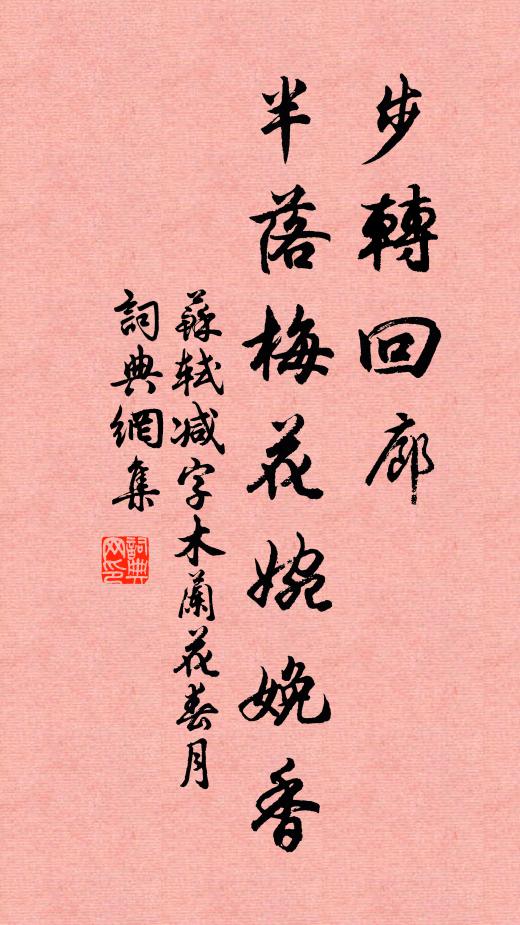 步轉回廊
半落梅花婉娩香
蘇軾減字木蘭花春月
詞典網集
詞典網印